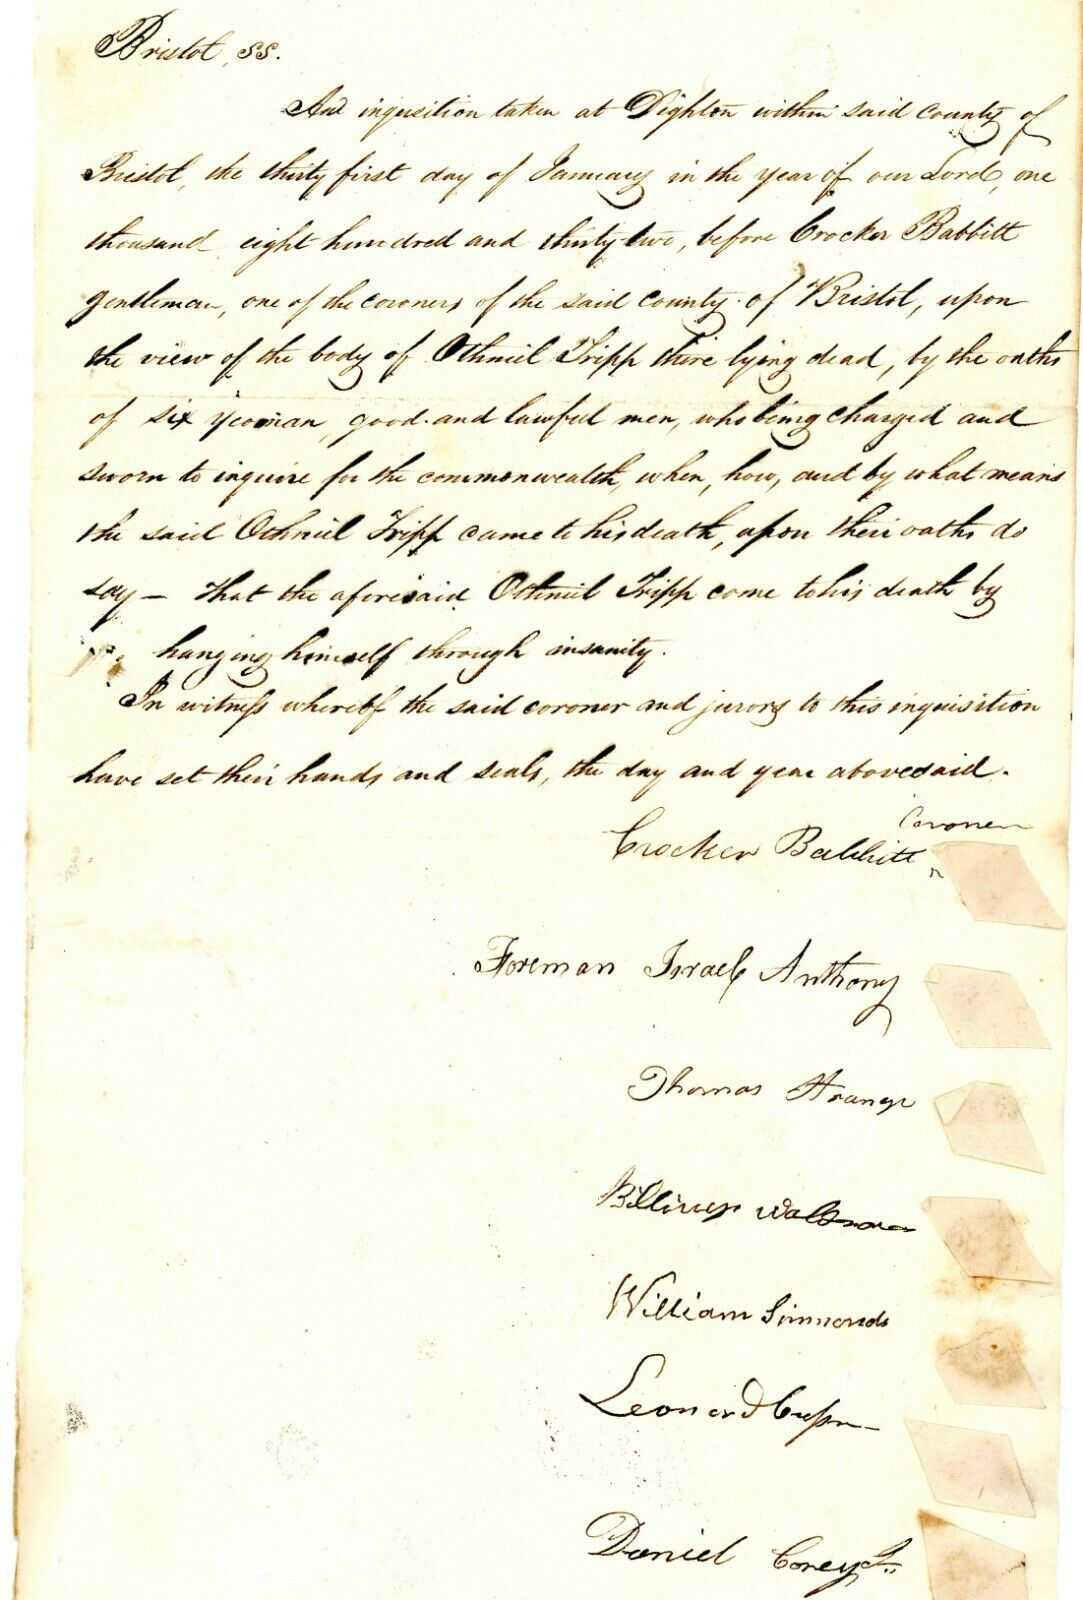 Bristol, ss.
And inquisition taken at Dighton within said county of
Bristol, the thirty first day of January in the year of our Lord, one
thousand eight hundred and thirty-two, before Crocker Babbitt
gentleman, one of the coroners of the said county of Bristol, upon
the view of the body of Othniel Tripp there lying dead, by the oaths
of six yeoman, good and lawful men, who being charged and
sworn to inquire for the commonwealth, when, how, and by what means
the said Othniel Tripp came to his death, upon their oaths do
say — that the aforesaid Othniel Tripp come to his death by
hanging himself through insanity.
In witness whereof the said coroner and jurors to this inquisition
have set their hands and seals, the day and year abovesaid.
Coroner
Crocker Babbitt
Foreman Israel Anthony
Thomas Strange
William Simmonds
Leonard
Daniel Corey Jr.